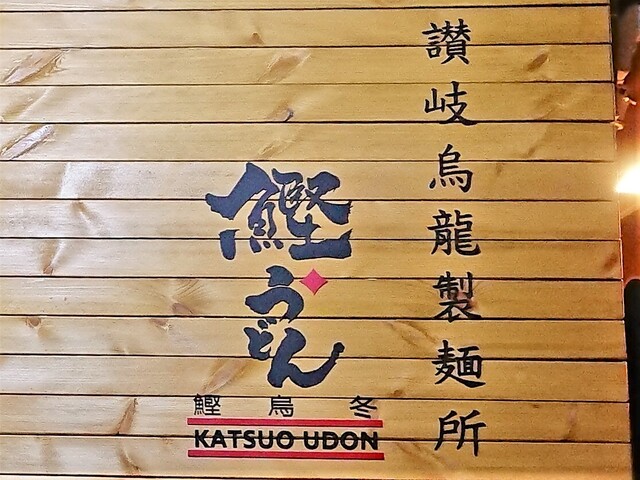 讃岐烏龍製麺所
鰹
うどん
鰹烏冬
KATSUO UDON